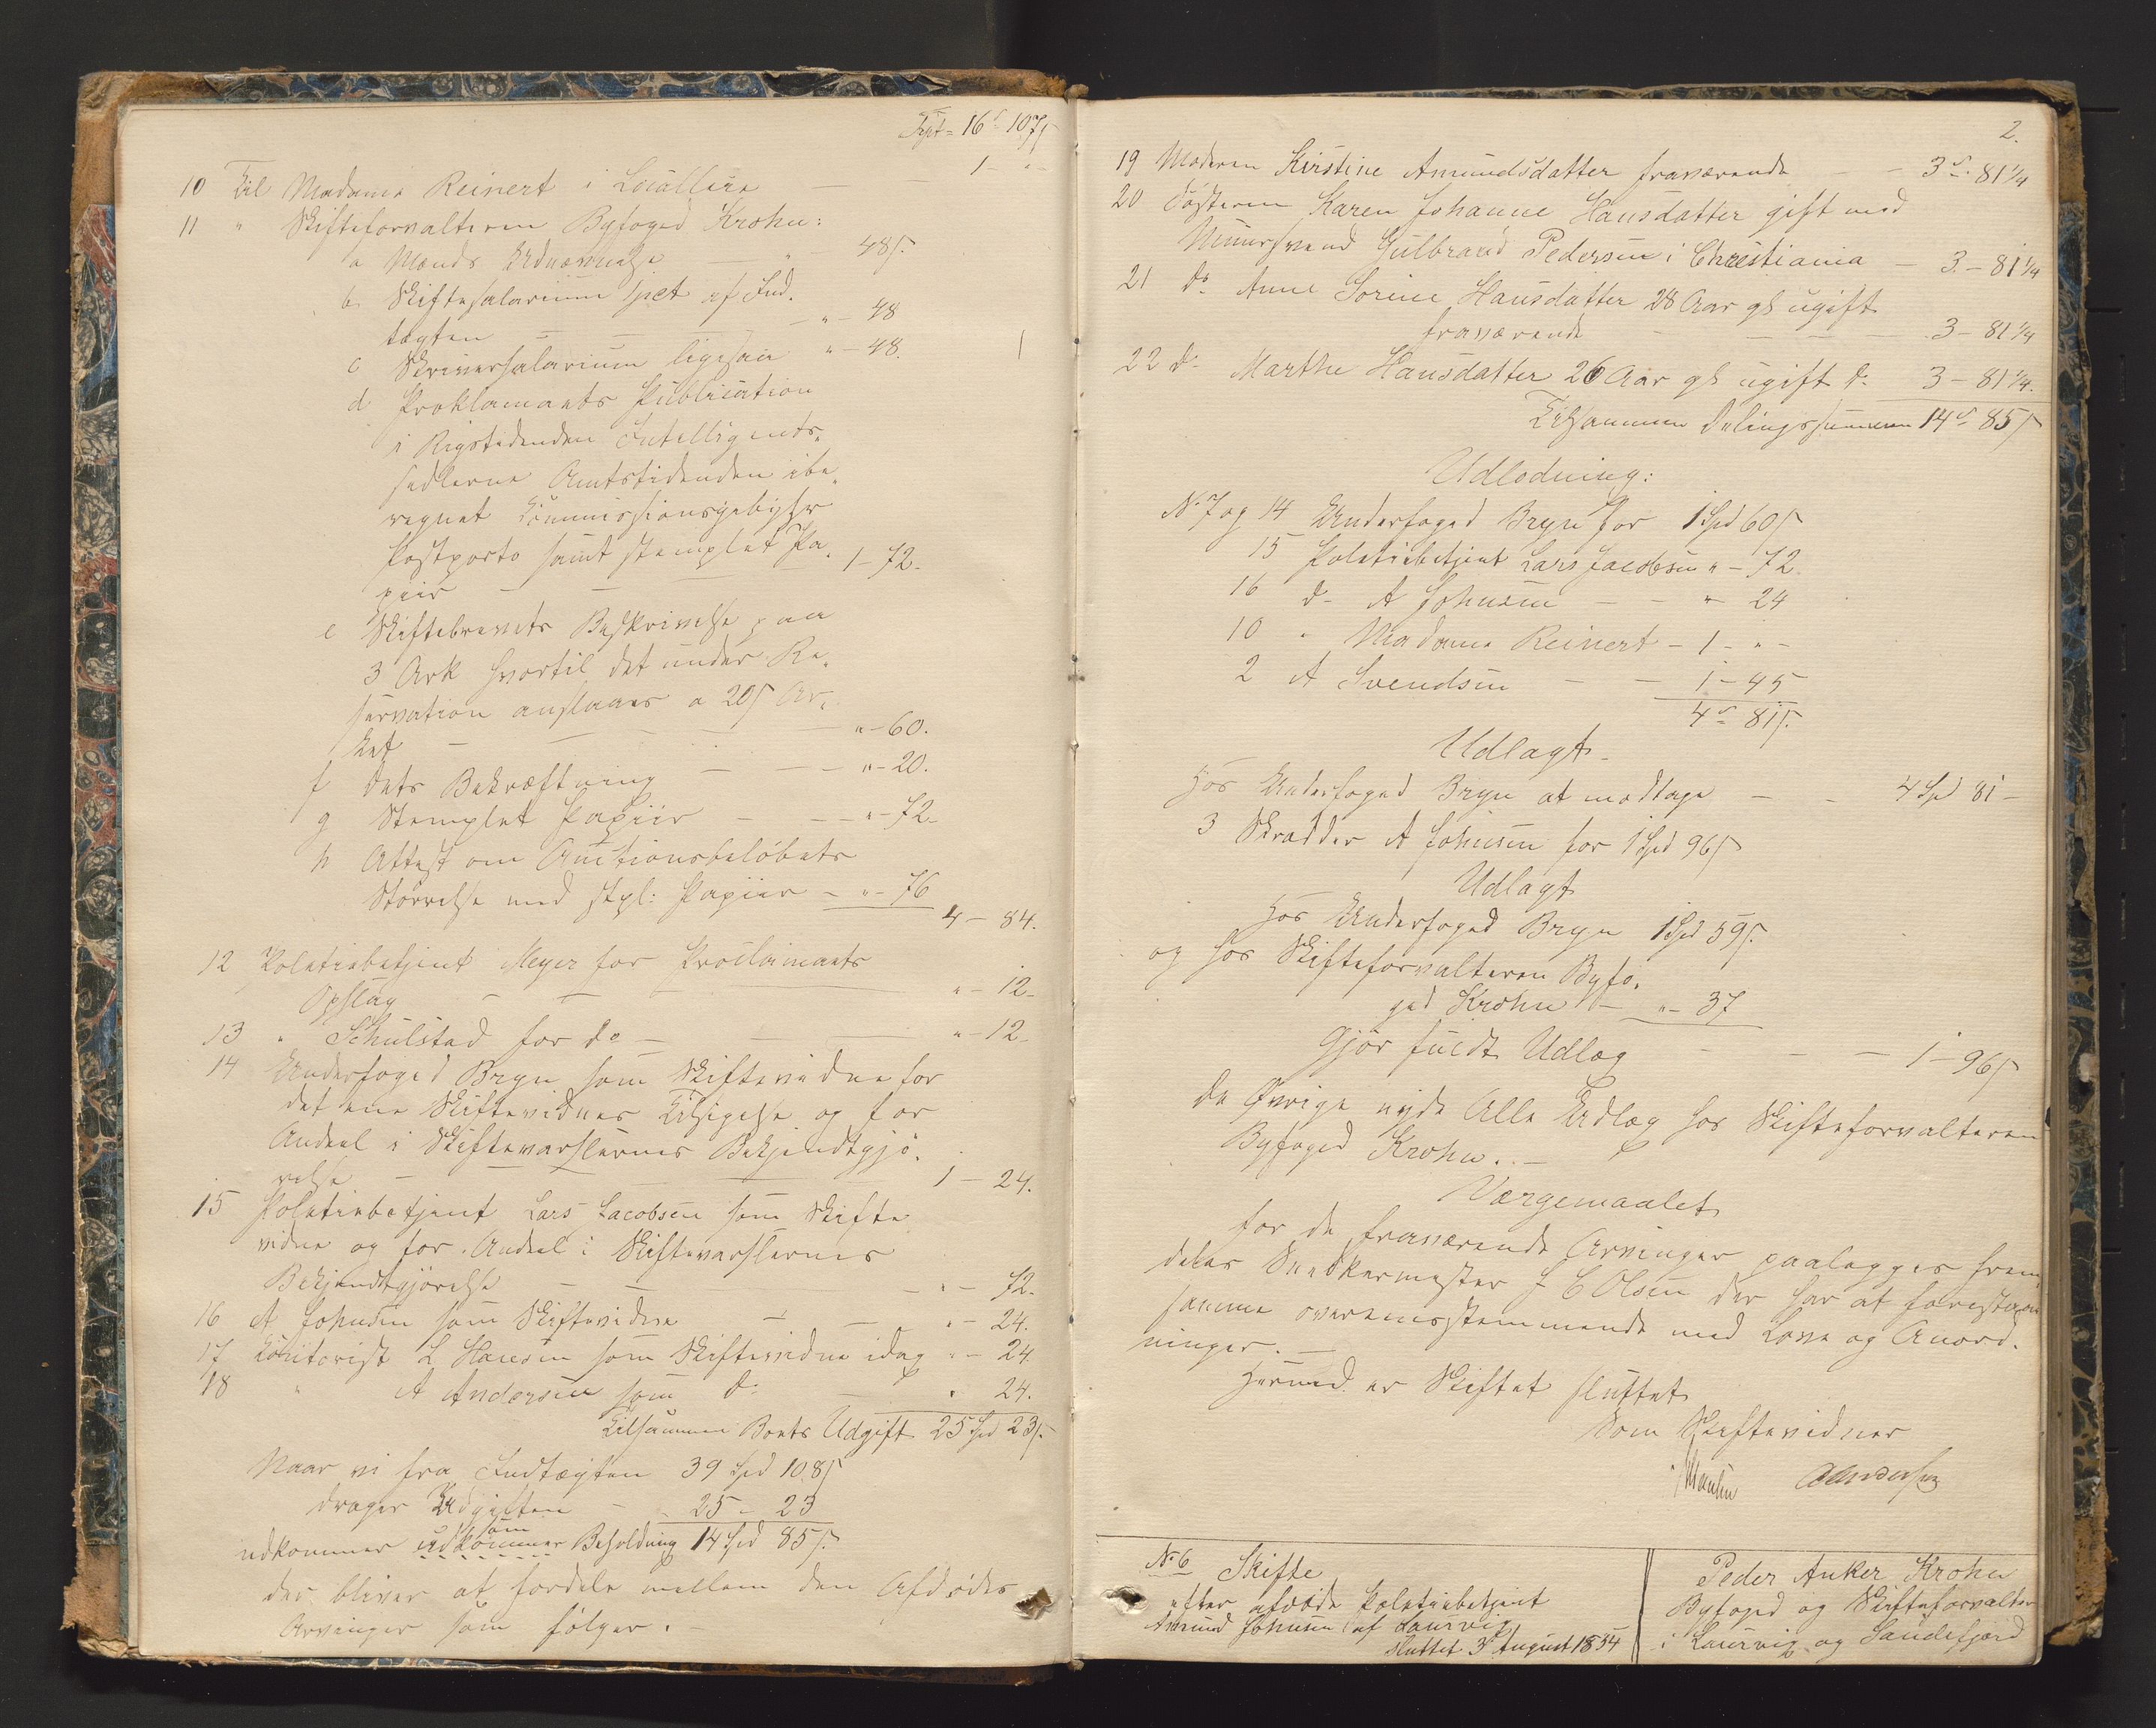 Tpt = 16 s 107 ß
10 Til Madame Reinert i Localleie — — 1 - " -
11 " Skifteforvalteren Byfoged Krohn:
a Mænds Udnævnelse — " - 48 ß.
b. Skiftesalarium 1 pct af Ind,
tægten — — — " - 48
c Skriversalarium ligesaa " - 48.
d Proklamaets Publication
i Rigstidenden Intelligents,
sedlerne Amtstidenden ibe,
regnet Commissionsgebyhr
Postporto samt stemplet Pa,
piir — — 1 - 72.
e Skiftebrevets Beskrivelse paa
3 Ark hvortil det under Re,
servation anslaaes a 20 ß Ar,
ket — — — — " - 60.
f dets Bekræftning — — — " - 20.
g Stemplet Papiir — — — " - 72.
h Attest om Auctionsbeløbets
Størrelse med stpl: Papiir — " - 76
4 - 84.
12 Politiebetjent Meyer for Proclamaets
Opslag — — — " - 12.
13 " Schulstad for do — — " - 12.
14 Underfoged Bryn som Skiftevidne for
det ene Skiftevidnes Tilsigelse og for
Andeel i Skiftevarslernes Bekjendtgjø,
relse — — — 1 - 24.
15 Politiebetjent Lars Jacobsen som Skifte
vidne og for Andeel i Skiftevarslernes
Bekjendtgjørelse — — — " - 72.
16 A Johnsen som Skiftevidne — — " - 24.
17 Contorist L Hansen som Skiftevidne idag " - 24.
18 " A Andersen som do — " 24.
Tilsammen Boets Udgift 25 Spd 23 ß.
Naar vi fra Indtægten 39 Spd 108 ß
drager Udgiften — 25 - 23
udkommer udkommer som Beholdning 14 Spd 85 ß.
der bliver at fordele mellem den Afdødes
Arvinger som følger. —
2.
19 Moderen Kirstine Amundsdatter fraværende — - 3 s. 81 1/4
20 Søsteren Karen Johanne Hansdatter gift med
Muursvend Gulbrand Pedersen i Christiania — 3. - 81 1/4
21 do Anne Sorine Hansdatter 28 Aar gl ugift
fraværende — — — 3 - 81 1/4
22 do Marthe Hansdatter 26 Aar gl ugift do 3 - 81 1/4.
Tilsammen Delingssummen 14 s 85 ß
Udlodning:
No 7 og 14 Underfoged Bryn for 1 Spd 60 ß
15 Politiebetjent Lars Jacobsen " - 72.
16 do A Johnsen — - " 24
10 " Madame Reinert - 1 - " -
2 A Svendsen — — 1 - 45
4 s 81 ß.
Udlagt
hos Underfoged Bryn at modtage — - 4 Spd 81 -
3 Skrædder A Johnsen for 1 Spd 96 ß
Udlagt
hos Underfoged Bryn 1 Spd 59 ß.
og hos Skifteforvalteren Byfo,
ged Krohn — " - 37
Gjør fuldt Udlæg — — — 1 - 96 ß
De Øvrige nyde Alle Udlæg hos Skifteforvalteren
Byfoged Krohn. —
Værgemaalet
for de fraværende Arvinger paalægges frem,
deles Snedkermester J C Olsen der har at forestaae
samme overensstemmende med Love og Anord,
ninger. —
Hermed er Skiftet sluttet
Som Skiftevidner
LHansen AAndersen
No 6 Skifte
efter afdøde Politiebetjent
Amund Johnsen af Laurvig
sluttet 3 August 1854
Peder Anker Krohn
Byfoged og Skifteforvalter
i Laurvig og Sandefjord